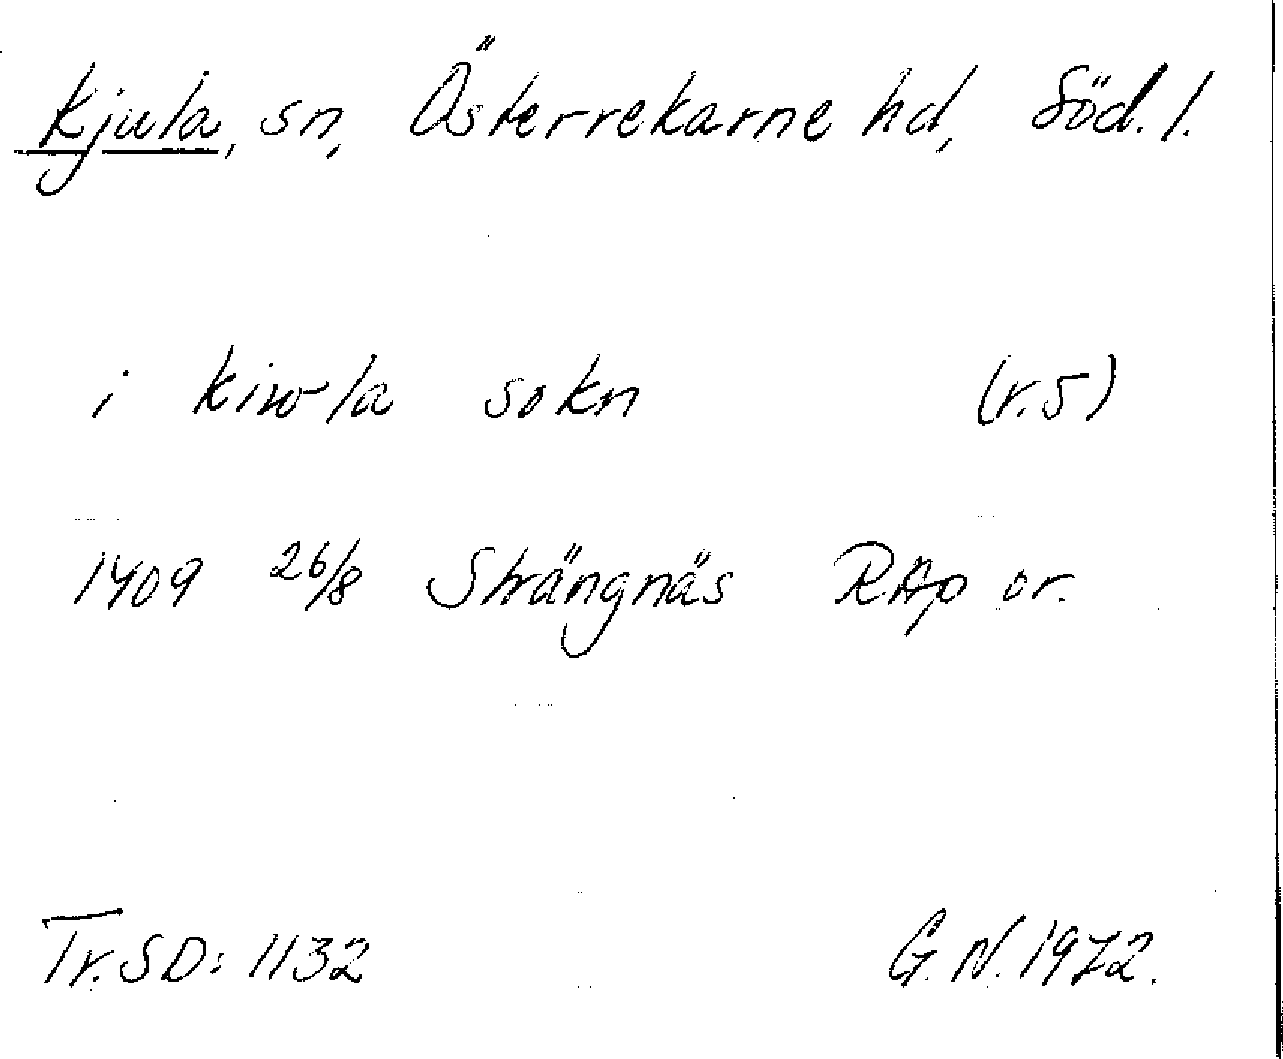 Kjula, sn, Österrekarne hd, Söd. l.
i kiwla sokn (r.5)
1409 26/8 Strängnäs RAp or.
Tr. SD: 1132 G. N. 1972.